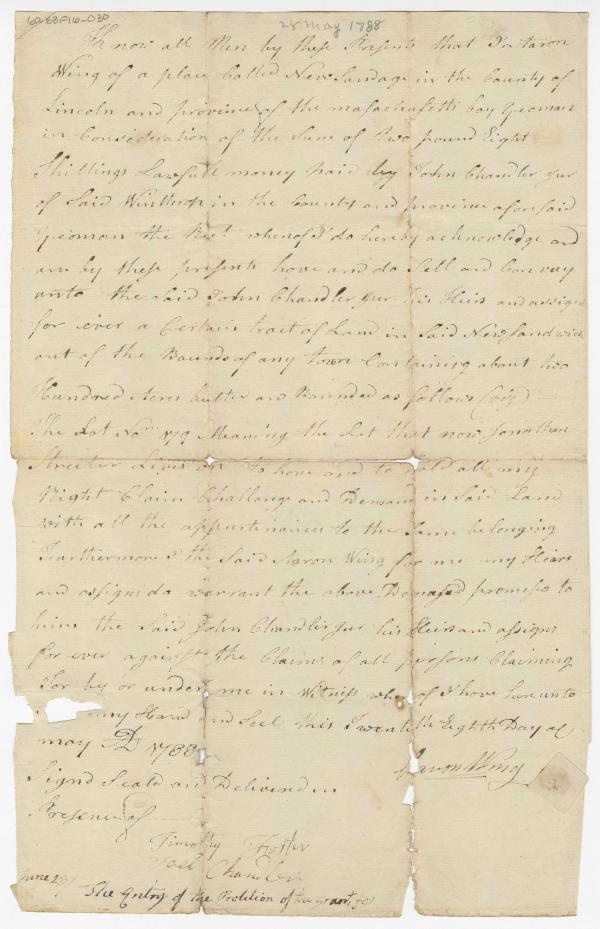 6283F16-030
28 May 1788
Know all Men by these Presents that I Aaron
Wing of a place Called New Sandage in the County of
Lincoln and province of the masachusetts bay yeoman
in Consideration of the Sum of two pound Eight
Shillings Lawfull money paid by John Chandler Jur
of Said Winthrop in the County and province aforesaid
yeoman the Rect whereof I do hereby acknowledge and
am by these presents have and do Sell and Convay
unto the Said John Chandler Jur his Heirs and assigns
for ever a Certain tract of Land in Said New Sandwich
out of the Bounds of any town Containing about two
Hundred Acres butted and Bounded as follows (viz)
The Lot No 79 Meaning the Lot that now Jonathan
Streeter Lives on To have and to hold all my
Right Claim Challange and Demand in Said Land
with all the appurtinances to the Same belonging
Fearthermore I the Said Aaron Wing for me my Hears
and assigns do warrant the above Demased promises to
him the Said John Chandler Jur his Heirs and assigns
for ever against the Claims of all persons Claiming
For by or under me in Witness whereof I have here unto
my Hand and Seel this Twenteth Eighth Day of
may AD 1788
Aaron Wing
Signd Seald and Deliverd in
Presence of
Timothy Foster
Joel Chandler
June 28
The Entry of the Protition of the Grant